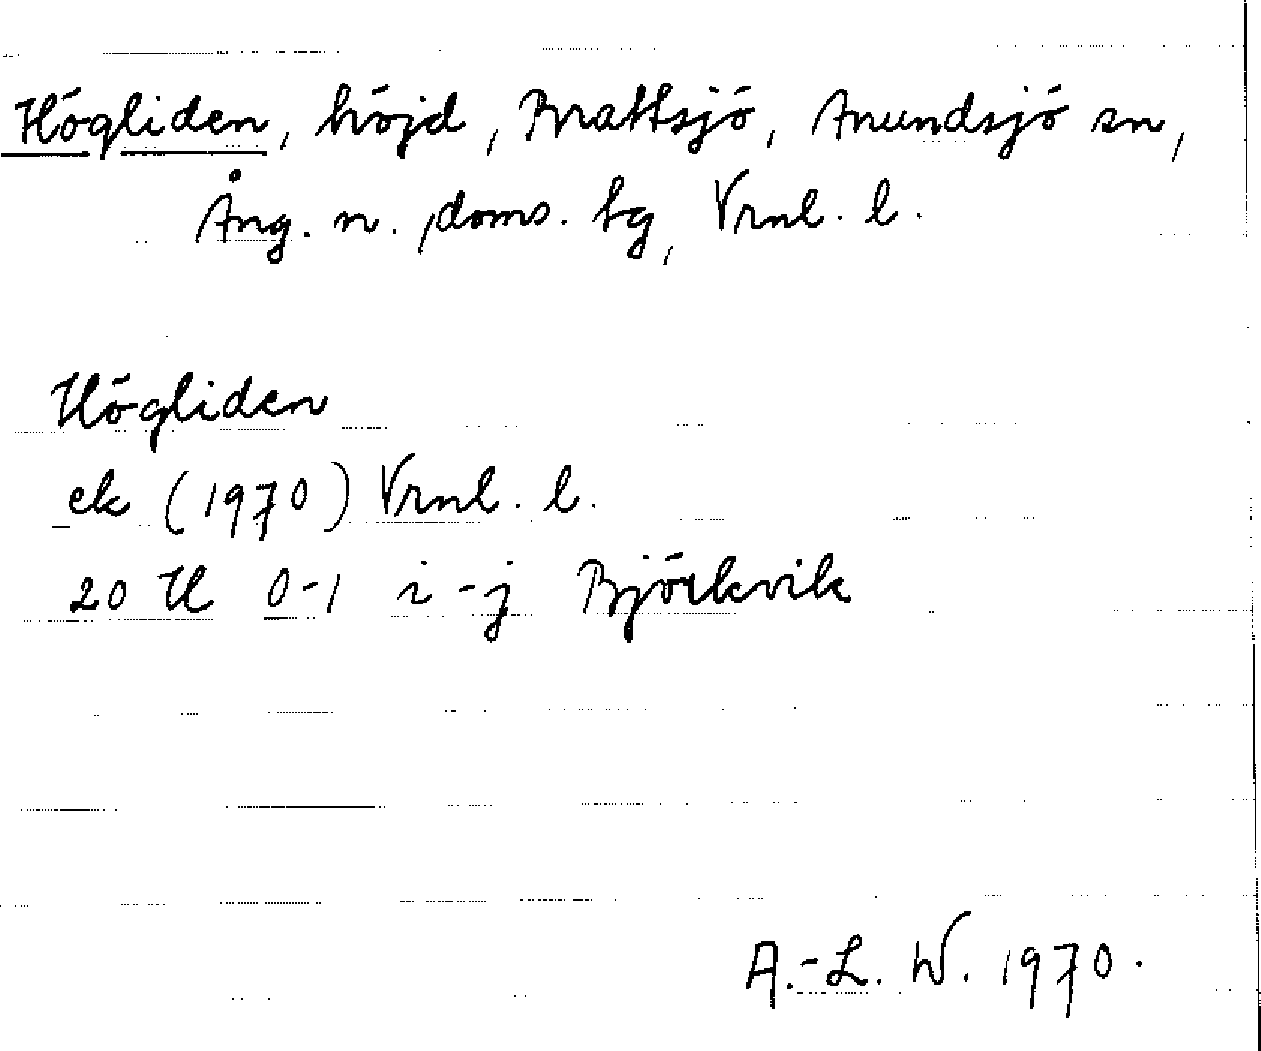 Högliden, höjd, Brattsjö, Anundsjö sn,
Ång. n. doms. bg, Vrnl. l.
Högliden
ek (1970) Vrnl. l.
20 H 0-1 i-j Björkvik
A.-L. W. 1970.